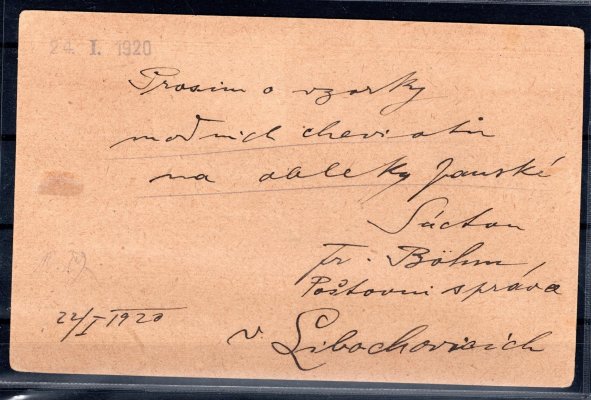 24. I. 1920
Prosím o vzorky
modních cheviotů
na obleky panské
S úctou
Fr. Böhm,
Poštovní správa
22/I 1920
v Libochovicích